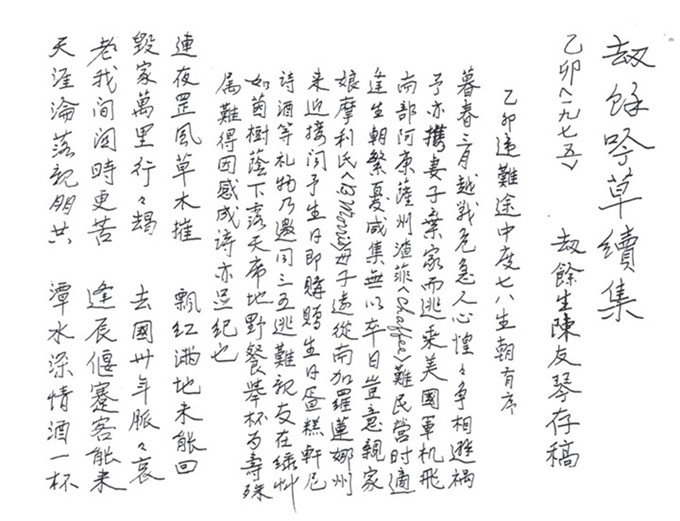 劫餘吟草續集
乙卯<一九七五> 劫餘生陳友琴存稿
乙卯逃難途中度七八生朝有序
暮春三月越戰危急人心惶々爭相避禍
予亦攜妻子棄家而逃乘美國軍机飛
南部阿康薩州渣菲<Chaffee>難民營時適
逢生朝繁憂咸集無以卒日豈意親家
娘摩利氏<Morris>母子遠從南加羅蓮娜州
來迎接聞予生日即購贈生日蛋糕軒尼
詩酒等礼物乃邀同三五逃難親友在綠艸
如茵樹蔭下露天席地野餐舉杯為壽殊
属難得因感成詩亦足紀也
連夜罡風草木摧 飄紅滿地未能回
毀家萬里行々竭 去國卅年脈々哀
老我間関時更苦 逢辰偃蹇客能來
天涯淪落親朋共 潭水深情酒一杯